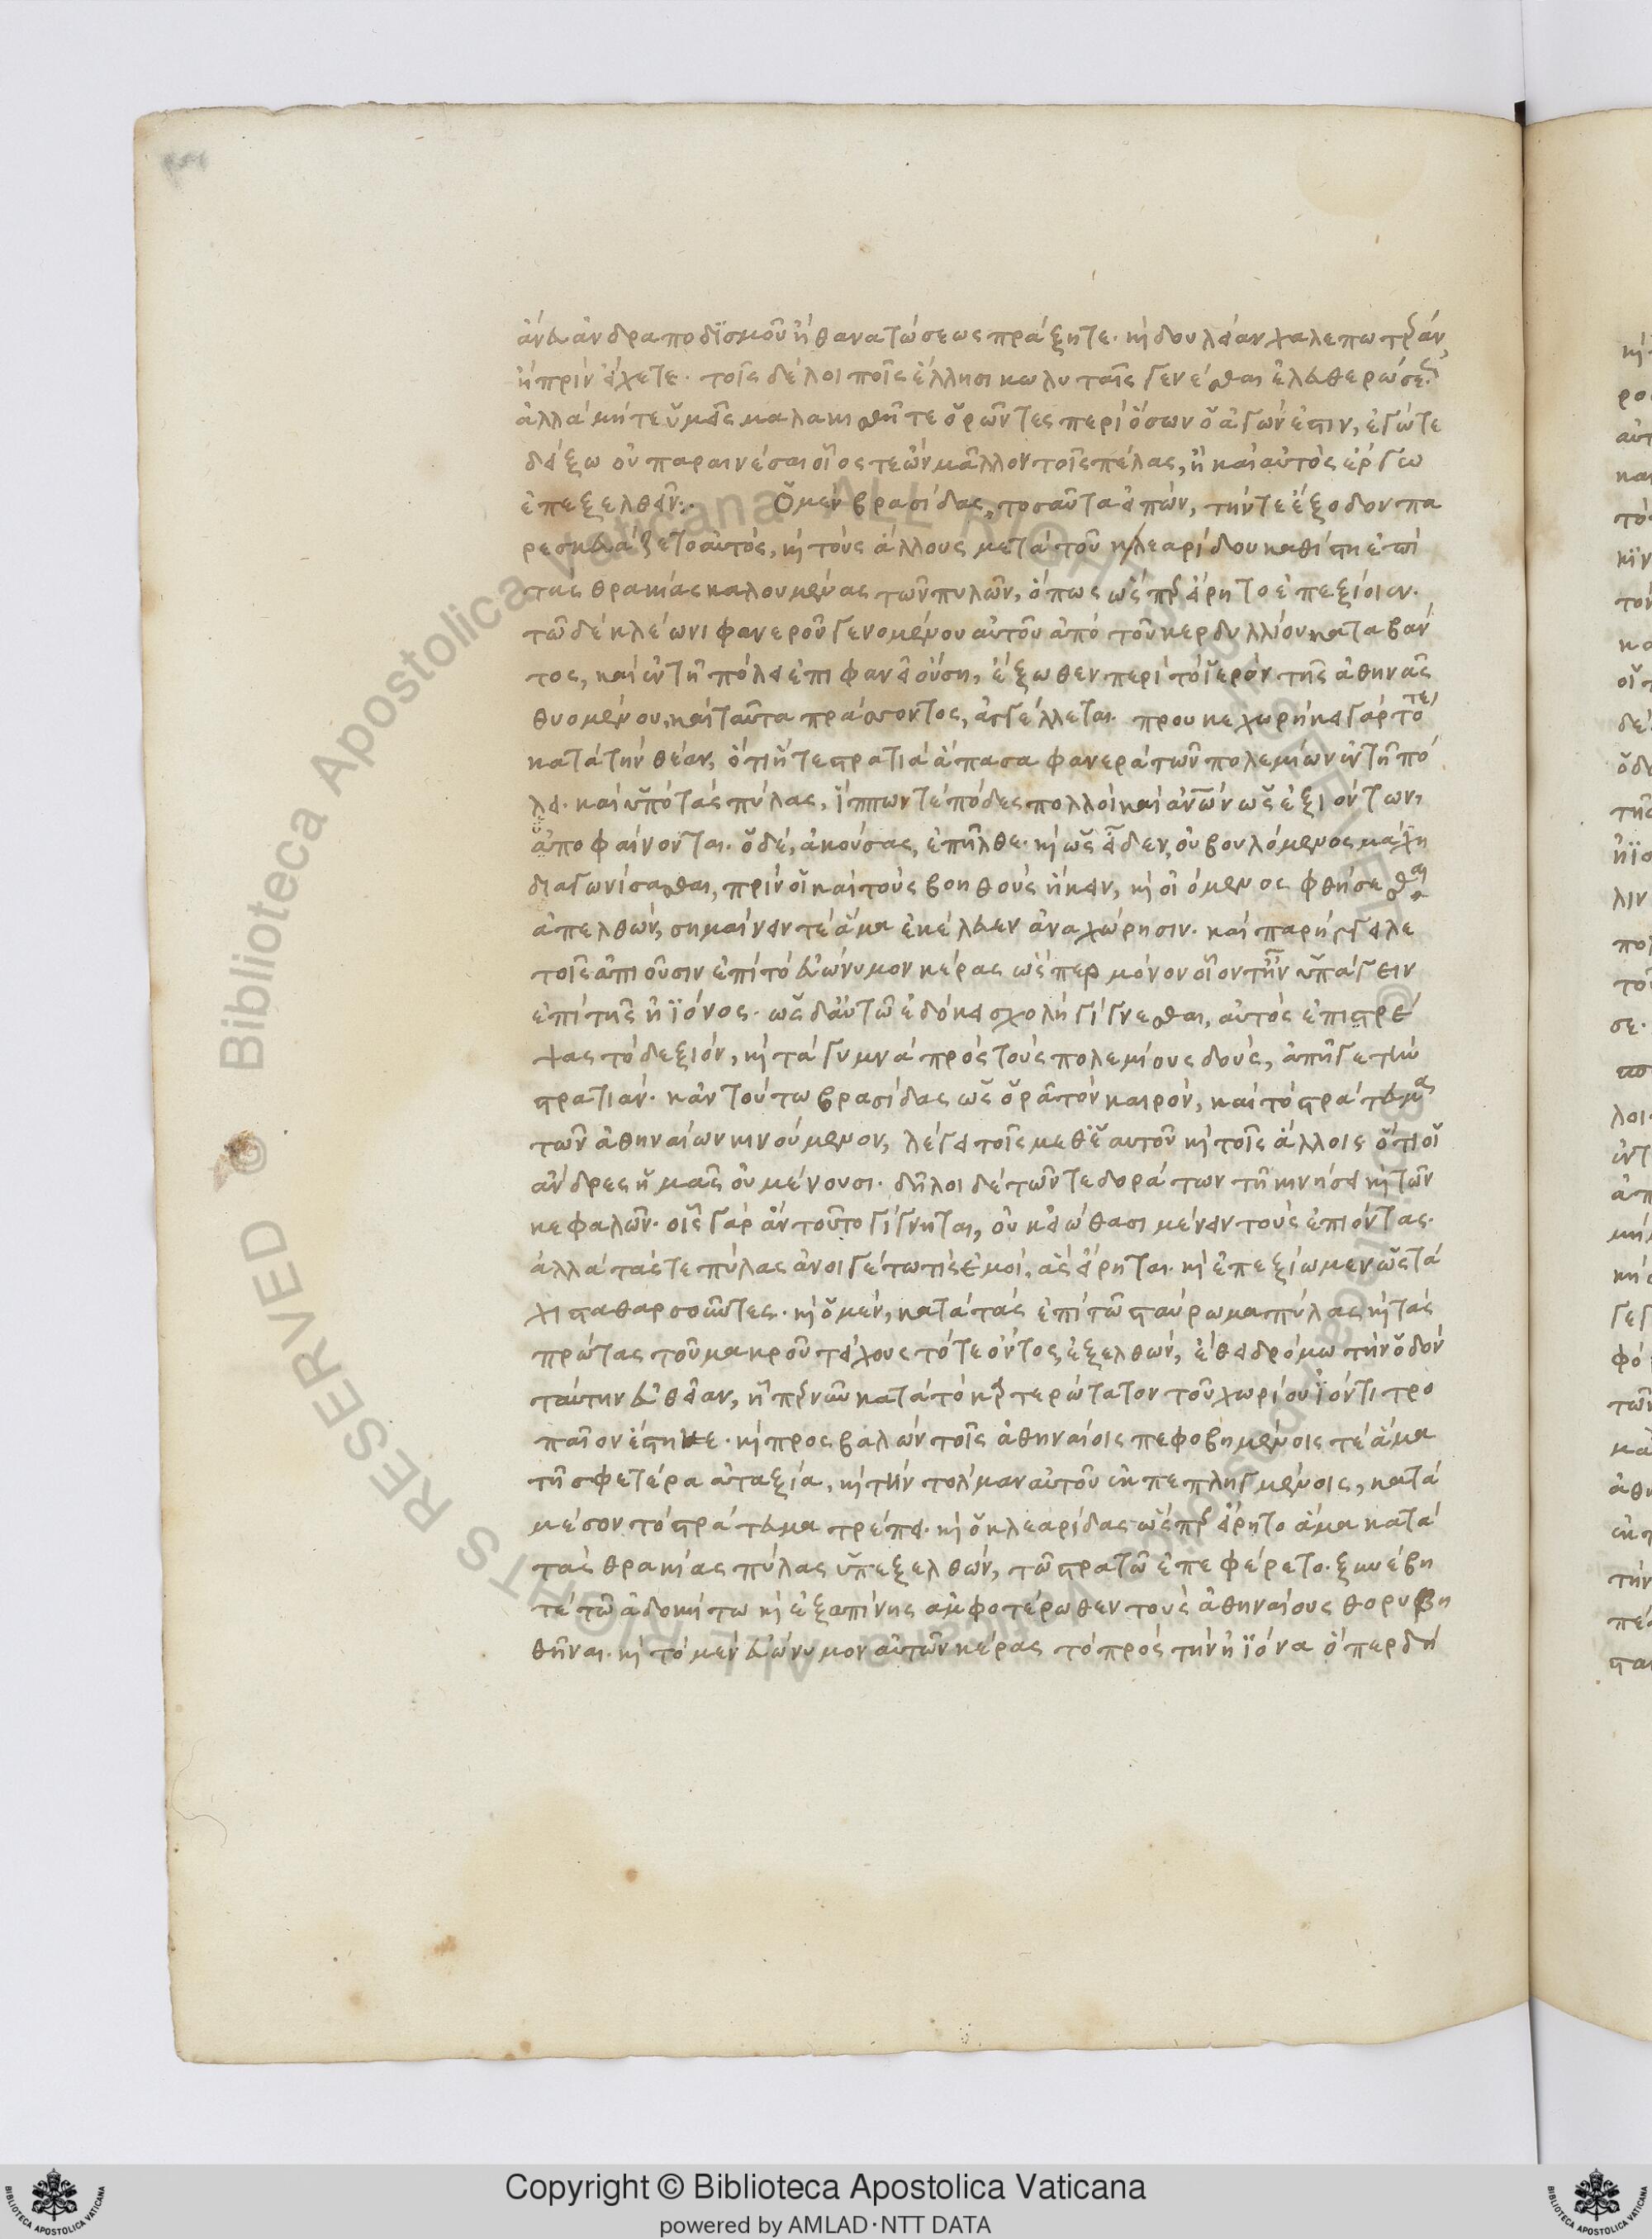 ἄνευ ἀνδραποδϊσμοῦ ἢ θανατώσεως πράξητε. καὶ δουλείαν χαλεπωτέραν
ἢ πρὶν εἴχετε. τοῖς δὲ λοιποῖς ἕλλησι κωλυταῖς γενέσθαι ἐλευθερώσεως
ἀλλὰ μήτε ὑμεῖς μαλακισθῆτε ὁρῶντες περὶ ὅσων ὁ ἀγών ἐστιν, ἐγώ τε
δείξω οὐ παραινέσαι οἷός τε ὢν μᾶλλον τοῖς πέλας, ἢ καὶ αὐτὸς ἔργω
ἐπεξελθεῖν:. Ὁ μὲν βρασίδας, τοσαῦτα εἰπών, τήν τε ἔξοδον πα
ρεσκευάζετο αὐτός, καὶ τοὺς ἄλλους μετὰ τοῦ κλεαρίδου καθίστη ἐπὶ
τὰς θρακίας καλουμένας τῶν πυλῶν, ὅπως ὥσπερ εἴρητο ἐπεξίοιεν.
τῶ δὲ κλέωνι φανεροῦ γενομένου αὐτοῦ ἀπὸ τοῦ κερδυλλίου καταβάν
τος, καὶ ἐν τῆ πόλει ἐπιφανεῖ οὔση, ἔξωθεν περὶ τὸ ἱερὸν τῆς ἀθηνᾶς
θυομένου, καὶ ταῦτα πράσσοντος, ἀγγέλλεται. προυκεχωρήκει γὰρ τότε
κατὰ τὴν θέαν, ὅτι ἥ τε στρατιὰ ἅπασα φανερὰ τῶν πολεμίων ἐν τῆ πό
λει. καὶ ὑπὸ τὰς πύλας, ἵππων τὲ πόδες πολλοὶ καὶ ἀνῶν ὡς ἐξιόντων,
ὑποφαίνονται. ὁ δέ, ἀκούσας, ἐπῆλθε. καὶ ὡς εἶδεν, οὐ βουλόμενος μάχη
διαγωνίσασθαι, πρίν οἱ καὶ τοὺς βοηθοὺς ἥκειν, καὶ οἰόμενος φθήσεσθαι
ἀπελθών, σημαίνειν τὲ ἅμα ἐκέλευεν ἀναχώρησιν. καὶ παρήγγειλε
τοῖς ἀπιοῦσιν ἐπὶ τὸ εὐώνυμον κέρας ὥσπερ μόνον οἷον τ' ἦν ὑπάγειν
ἐπὶ τῆς ἠϊόνος. ὡς δ' αὐτῶ ἐδόκει σχολὴ γίγνεσθαι, αὐτὸς ἐπιστρέ
ψας τὸ δεξιόν, καὶ τὰ γυμνὰ πρὸς τοὺς πολεμίους δούς, ἀπῆγε τὴν
στρατιάν. κἀν τούτω βρασίδας ὡς ὁρᾶ τὸν καιρόν, καὶ τὸ στράτευμα
τῶν ἀθηναίων κινούμενον, λέγει τοῖς μεθ' ἑαυτοῦ καὶ τοῖς ἄλλοις ὅτι οἱ
ἄνδρες ἡμᾶς οὐ μένουσι. δῆλοι δὲ τῶν τε δοράτων τῆ κινήσει καὶ τῶν
κεφαλῶν. οἷς γὰρ ἂν τοῦτο γίγνηται, οὐκ εἰώθασι μένειν τοὺς ἐπιόντας.
ἀλλὰ τάς τε πύλας ἀνοιγέτω τις ἐμοί, ἃς εἴρηται. καὶ ἐπεξίωμεν ὡς τά
χιστα θαρσοῦντες. καὶ ὁ μέν, κατὰ τὰς ἐπὶ τῶ σταύρωμα πύλας καὶ τὰς
πρώτας τοῦ μακροῦ τείχους τότε ὄντος, ἐξελθών, ἔθει δρόμω τὴν ὁδὸν
ταύτην εὐθεῖαν, ἧπερ νῦν κατὰ τὸ καρτερώτατον τοῦ χωρίου ἰόντι τρο
παῖον ἕστηκε. καὶ προςβαλὼν τοῖς ἀθηναίοις πεφοβημένοις τὲ ἅμα
τῆ σφετέρα ἀταξία, καὶ τὴν τόλμαν αὐτοῦ ἐκπεπληγμένοις, κατὰ
μέσον τὸ στράτευμα τρέπει. καὶ ὁ κλεαρίδας ὥσπερ εἴρητο ἅμα κατὰ
τὰς θρακίας πύλας ὑπεξελθών, τῶ στρατῶ ἐπεφέρετο. ξυνέβη
τὲ τῶ ἀδοκήτω καὶ ἐξαπίνης ἀμφοτέρωθεν τοὺς ἀθηναίους θορυβη
θῆναι. καὶ τὸ μὲν εὐώνυμον αὐτῶν κέρας τὸ πρὸς τὴν ἠϊόνα ὅπερ δὴ
© Biblioteca Apostolica Vaticana ALL RIGHTS RESERVED
Copyright © Biblioteca Apostolica Vaticana
powered by AMLAD·NTT DATA